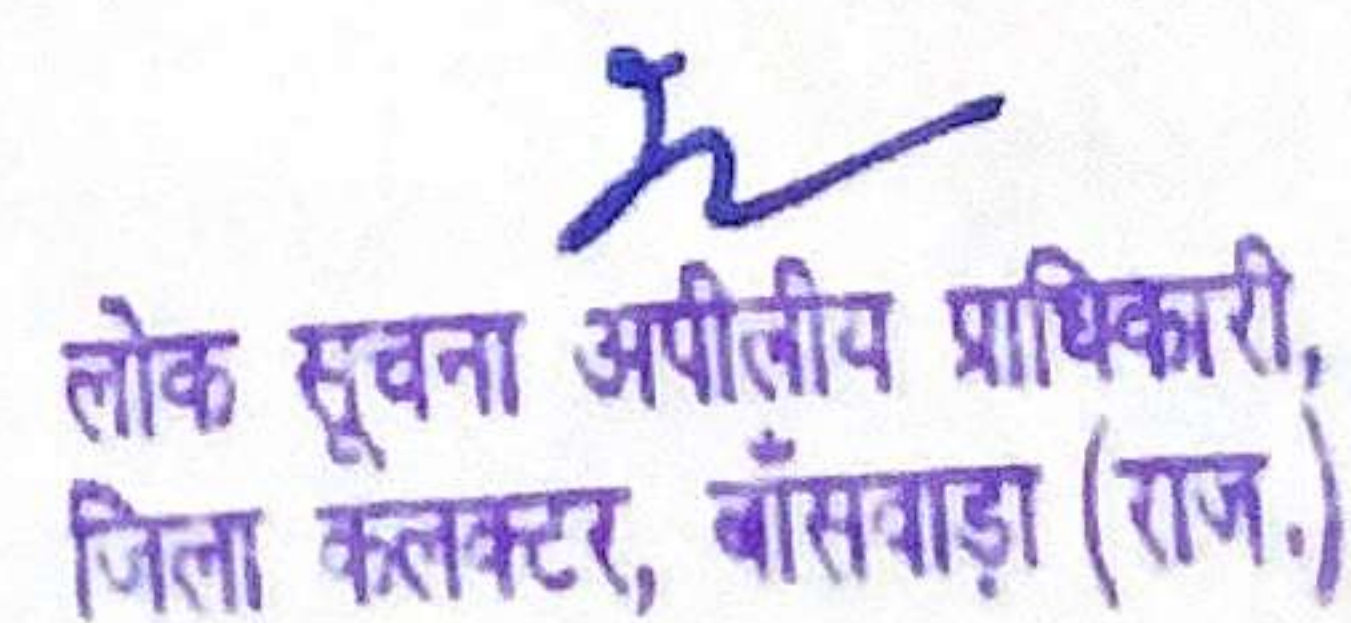 लोक सूचना अपीलीय प्राधिकारी,
जिला कलक्टर, बाँसवाड़ा (राज.)